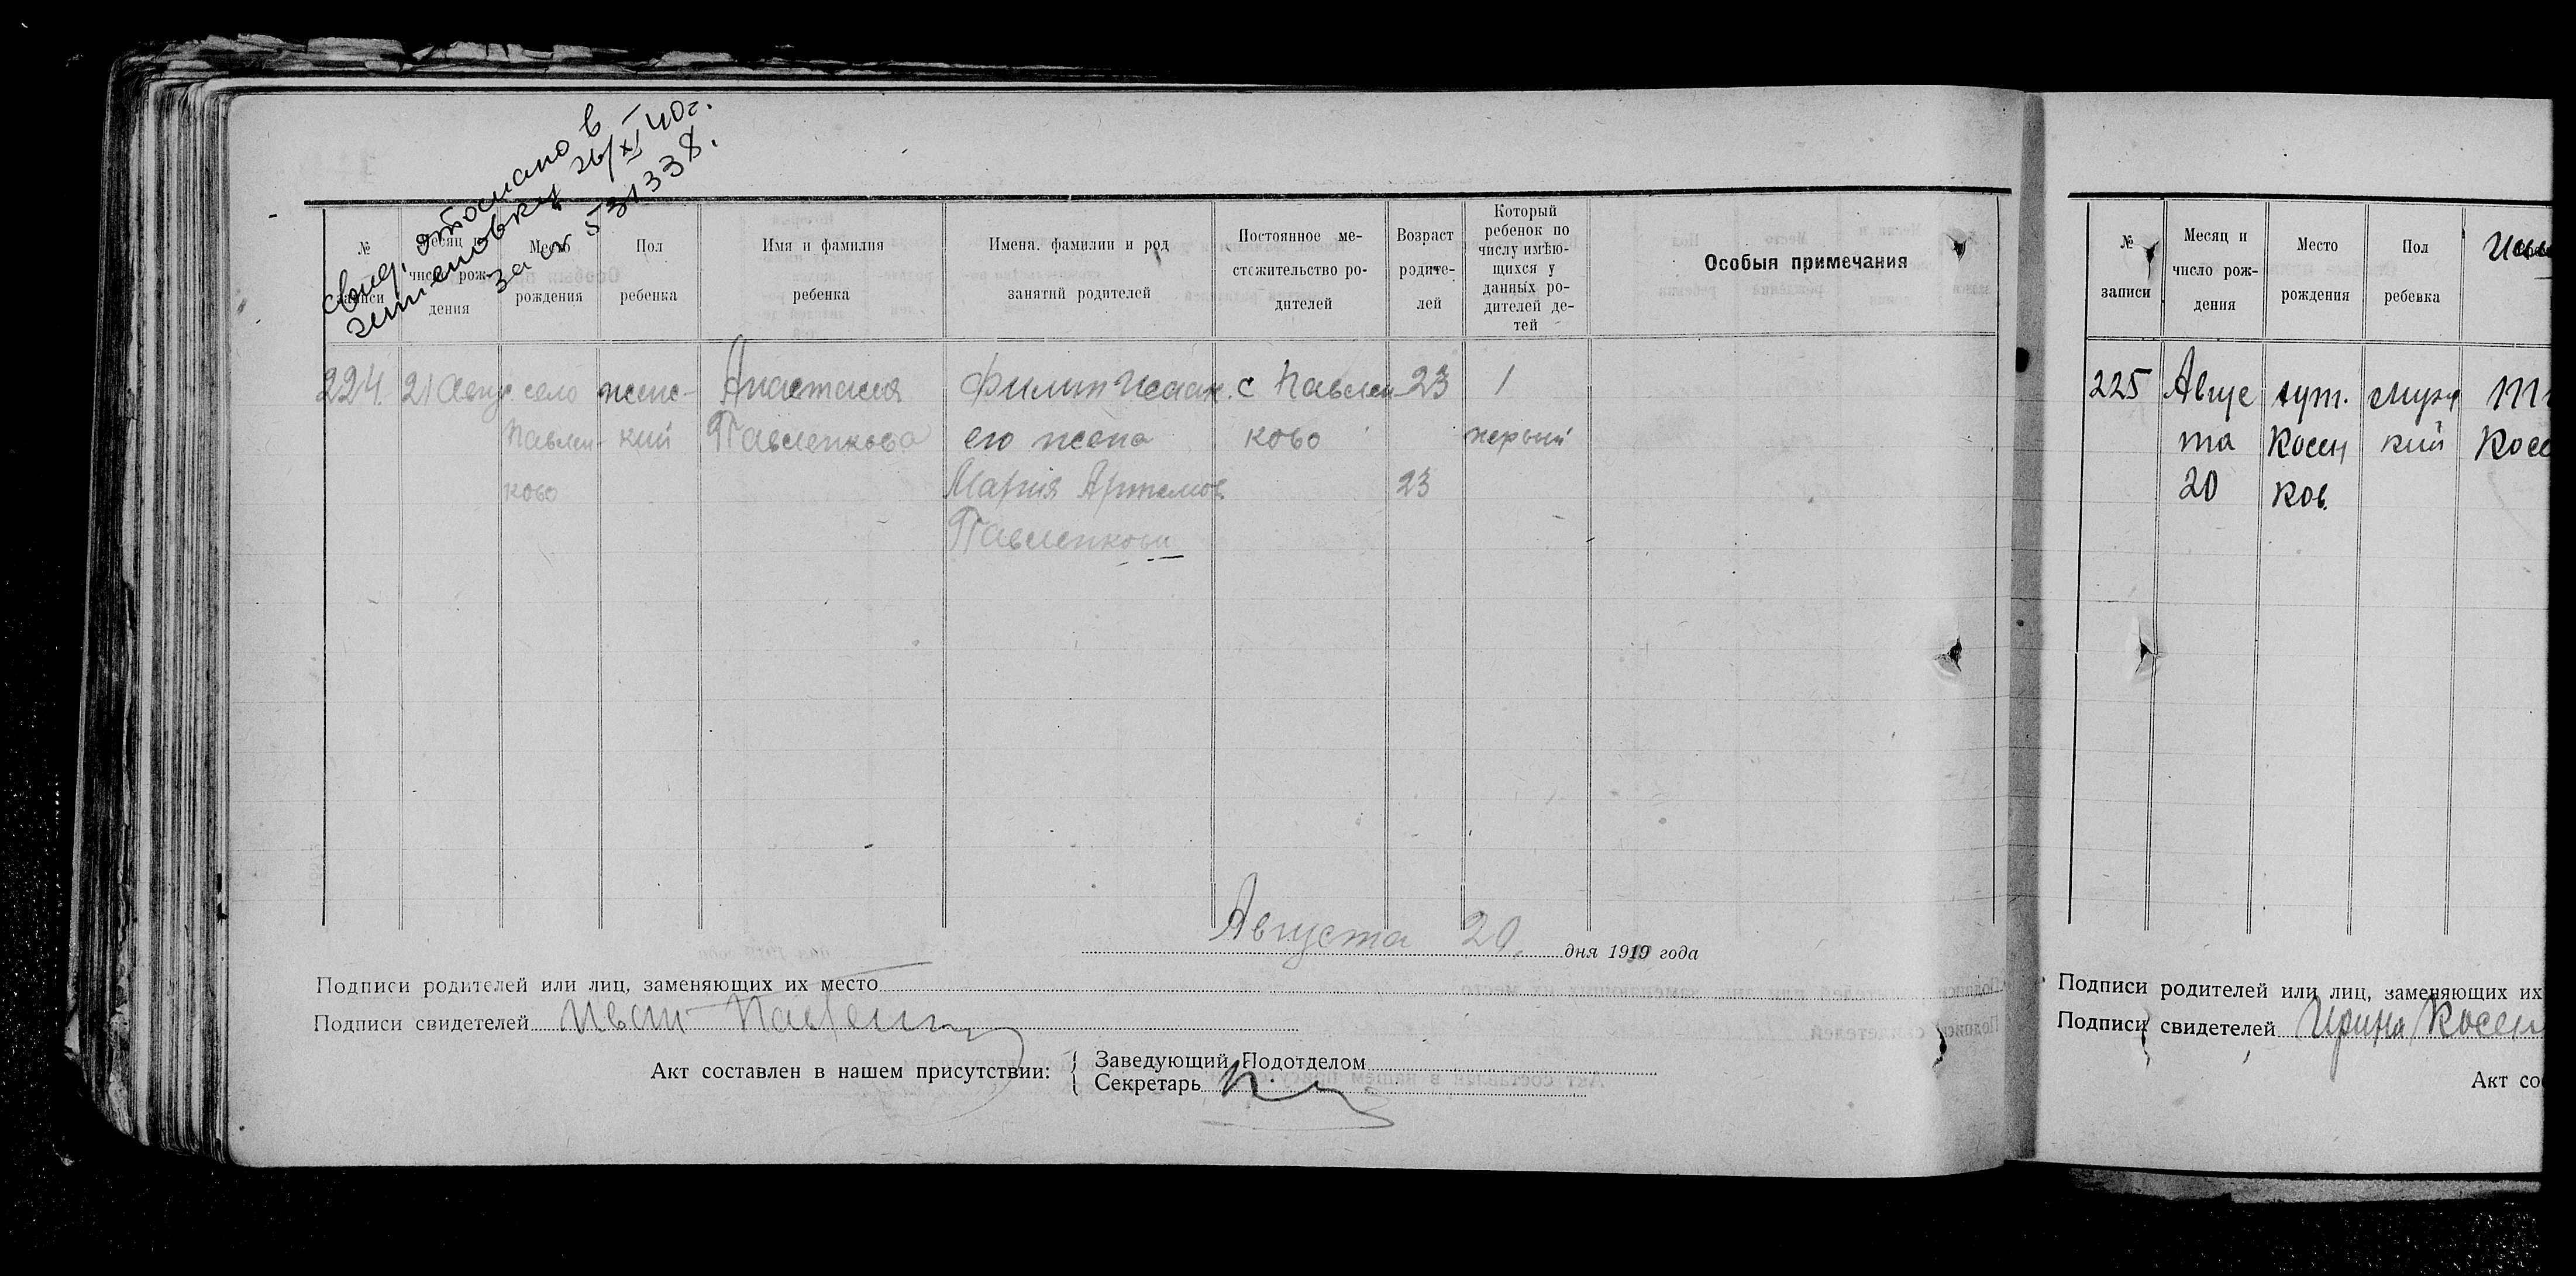 свид. отослано в
26/XI 40г.
за № 531338.
№
записи
Месяц и
число рож-
дения
Место
рождения
Пол
ребенка
Имя и фамилия
ребенка
Имена. фамилии и род
занятий родителей
Постоянное ме-
стожительство ро-
дителей
Возраст
родите-
лей
Который
ребенок по
числу имѣю-
щихся у
данных ро-
дителей де-
тей
Особыя примечания
224. 21 Авгус село женс- Анастасия Филип Исаак. с Павлен- 23 1
Павлен- кий Павленкова его жена ково первый
ково Мария Артемов. 23
Павленковы
Августа 20. дня 1919 года
Подписи родителей или лиц, заменяющих их место
Подписи свидетелей Иван
Акт составлен в нашем присутствии: { Заведующий Подотделом
Секретарь
№
записи
Месяц и
число рож-
дения
Место
рождения
Пол
ребенка
225 Авгус хут. мужс
та Косен кий Косе
20 ков.
Подписи родителей или лиц, заменяющих их
Подписи свидетелей Ирина Косен
Акт со